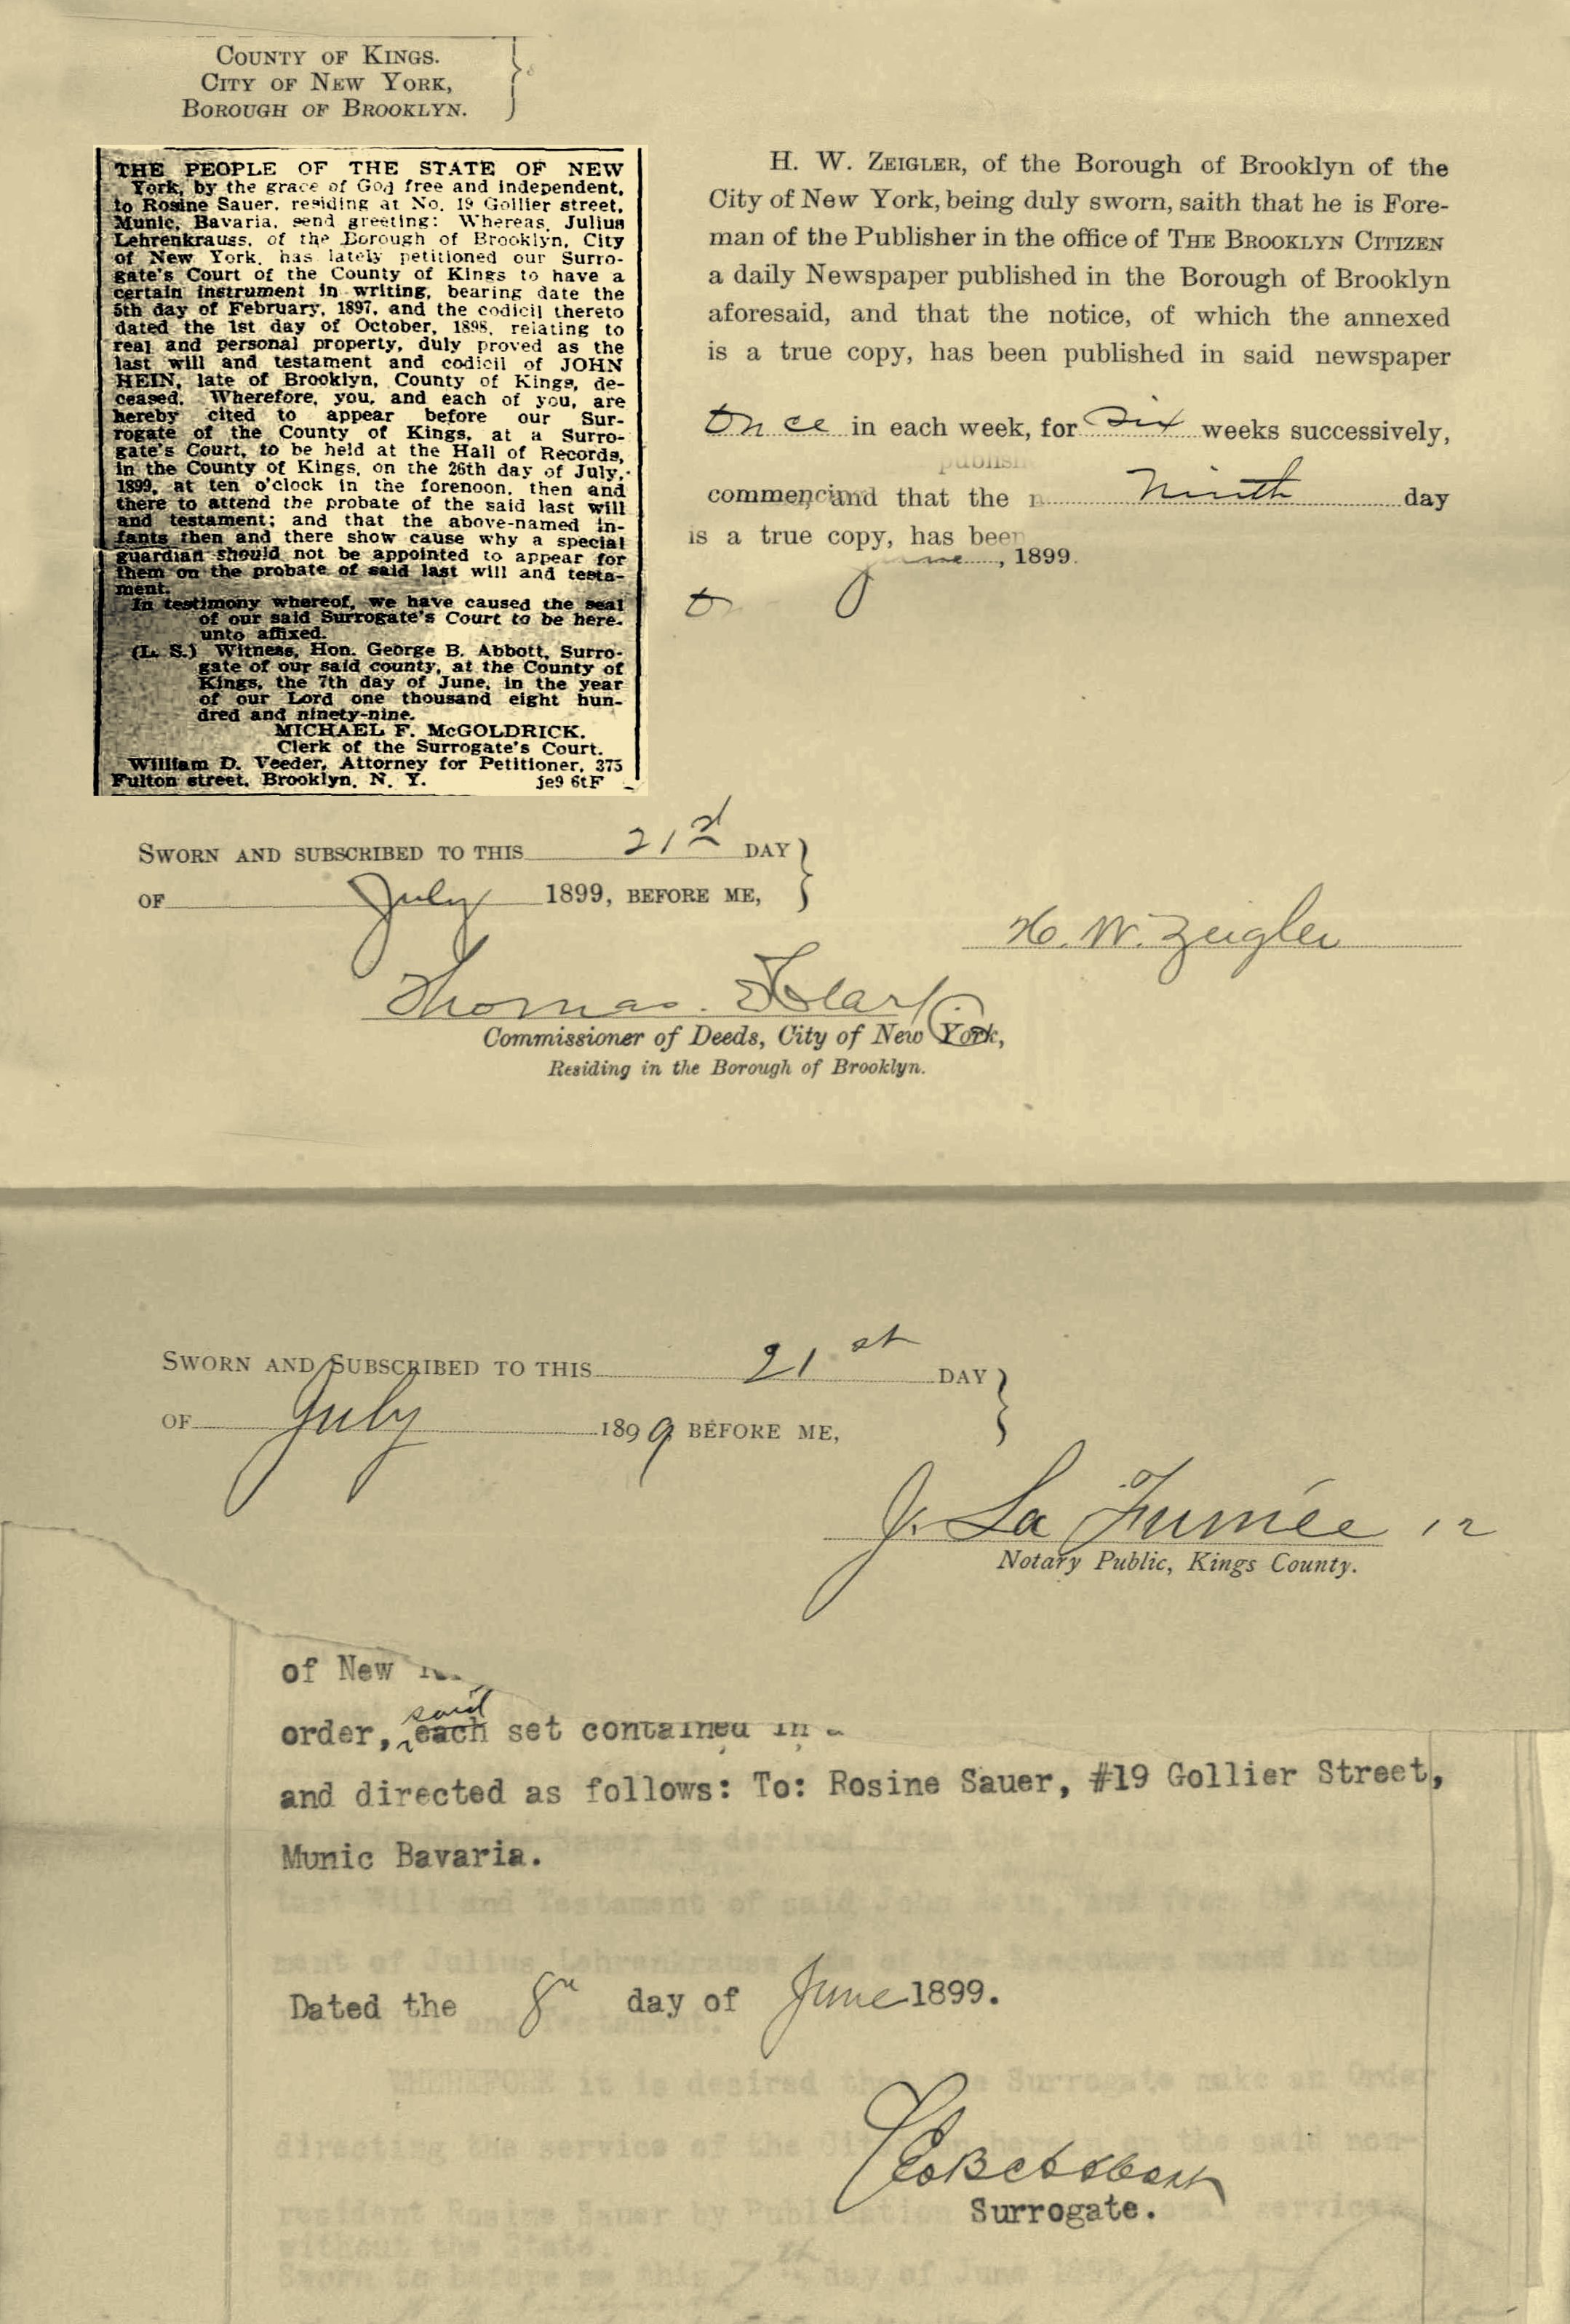 COUNTY OF KINGS.
CITY OF NEW YORK,
BOROUGH OF BROOKLYN.
THE PEOPLE OF THE STATE OF NEW
York, by the grace of God free and independent,
to Rosine Sauer, residing at No. 19 Gollier street,
Munic, Bavaria, send greeting: Whereas, Julius
Lehrenkrauss, of the Borough of Brooklyn, City
of New York, has lately petitioned our Surro-
gate's Court of the County of Kings to have a
certain instrument in writing, bearing date the
5th day of February, 1897, and the codicil thereto
dated the 1st day of October, 1898, relating to
real and personal property, duly proved as the
last will and testament and codicil of JOHN
HEIN, late of Brooklyn, County of Kings, de-
ceased. Wherefore, you, and each of you, are
hereby cited to appear before our Sur-
rogate of the County of Kings, at a Surro-
gate's Court, to be held at the Hall of Records,
in the County of Kings, on the 26th day of July,
1899, at ten o'clock in the forenoon, then and
there to attend the probate of the said last will
and testament; and that the above-named in-
fants then and there show cause why a special
guardian should not be appointed to appear for
them on the probate of said last will and testa-
ment.
In testimony whereof, we have caused the seal
of our said Surrogate's Court to be here-
unto affixed.
(L. S.) Witness, Hon. George B. Abbott, Surro-
gate of our said county, at the County of
Kings, the 7th day of June, in the year
of our Lord one thousand eight hun-
dred and ninety-nine.
MICHAEL F. McGOLDRICK.
Clerk of the Surrogate's Court.
William D. Veeder, Attorney for Petitioner, 375
Fulton street, Brooklyn, N. Y. je9 6tF
H. W. ZEIGLER, of the Borough of Brooklyn of the
City of New York, being duly sworn, saith that he is Fore-
man of the Publisher in the office of THE BROOKLYN CITIZEN
a daily Newspaper published in the Borough of Brooklyn
aforesaid, and that the notice, of which the annexed
is a true copy, has been published in said newspaper
Once in each week, for six weeks successively,
publish
and that the Ninth day
is a true copy, has been
1899.
SWORN AND SUBSCRIBED TO THIS 21st DAY
OF July 1899, BEFORE ME,
H. W. Zeigler
Thomas F Clark
Commissioner of Deeds, City of New York,
Residing in the Borough of Brooklyn.
SWORN AND SUBSCRIBED TO THIS 21st DAY
OF July 1899 BEFORE ME,
J. La Fumée Jr
Notary Public, Kings County.
of New
said
order, each set contained in a
and directed as follows: To: Rosine Sauer, #19 Gollier Street,
Munic Bavaria.
last Will and Testament of said John Hein, and from the state-
ment of Julius Lehrenkrauss one of the Executors named in the
Dated the 8th day of June 1899.
last Will and Testament.
WHEREFORE it is desired that the Surrogate make an Order
directing the service of the on the said non-
Geo B Abbott
resident Rosine Sauer by Publication
Surrogate.
without the State.
Sworn to before me this 7th day of June 1899